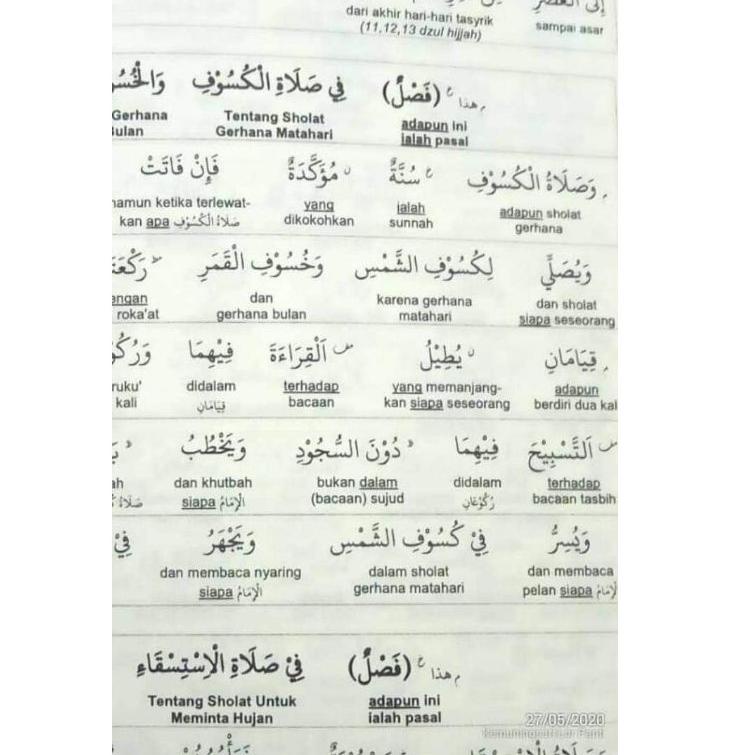 إلى العصر
dari akhir hari-hari tasyrik sampai asar
(11,12,13 dzul hijjah)
هذا (فَصْلٌ) فِي صَلَاةِ الْكُسُوْفِ
adapun ini Tentang Sholat Gerhana
ialah pasal Gerhana Matahari Bulan
وَصَلَاةُ الْكُسُوْفِ سُنَّةٌ مُؤَكَّدَةٌ فَإِنْ فَاتَتْ
adapun sholat ialah yang namun ketika terlewat-
gerhana sunnah dikokohkan kan apa صَلَاةُ الْكُسُوْفِ
وَيُصَلِّي لِكُسُوْفِ الشَّمْسِ وَخُسُوْفِ الْقَمَرِ
dan sholat karena gerhana dan
siapa seseorang matahari gerhana bulan roka'at
قِيَامَانِ يُطِيْلُ اَلْقِرَاءَةَ فِيْهِمَا
adapun yang memanjang- terhadap didalam ruku'
berdiri dua kan siapa seseorang bacaan قِيَامَانِ kali
اَلتَّسْبِيْحَ فِيْهِمَا دُوْنَ السُّجُوْدِ وَيَخْطُبُ
terhadap didalam bukan dalam dan khutbah
bacaan tasbih رُكُوْعَانِ (bacaan) sujud siapa الْإِمَامُ
وَيُسِرُّ فِيْ كُسُوْفِ الشَّمْسِ وَيَجْهَرُ فِيْ
dan membaca dalam sholat dan membaca nyaring
pelan siapa الْإِمَامُ gerhana matahari siapa الْإِمَامُ
هذا (فَصْلٌ) فِيْ صَلَاةِ الْاِسْتِسْقَاءِ
adapun ini Tentang Sholat Untuk
ialah pasal Meminta Hujan
27/05/2020